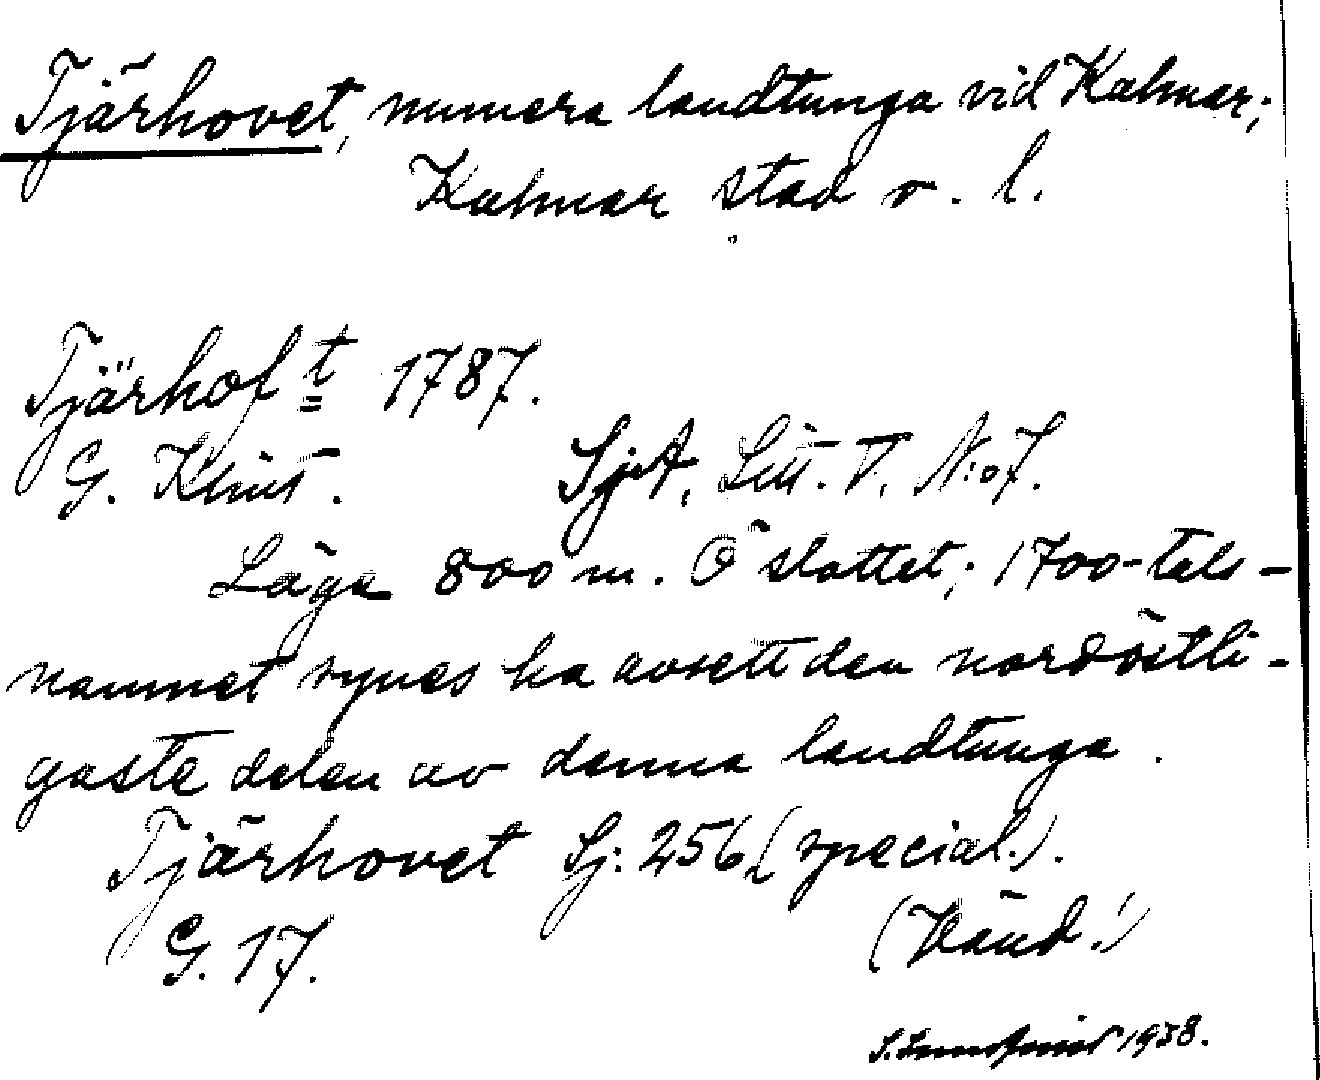 Tjärhovet, numera landtunga vid Kalmar;
Kalmar stad o. l.
Tjärhof t 1787.
G. Klint. SjA, Litt. V. N:o 7.
Läge 800 m. Ö slottet; 1700-tals-
namnet synes ha avsett den nordöstli-
gaste delen av denna landtunga.
Tjärhovet Sj. 256 (special.).
G. 17. (Vänd!)
1938.